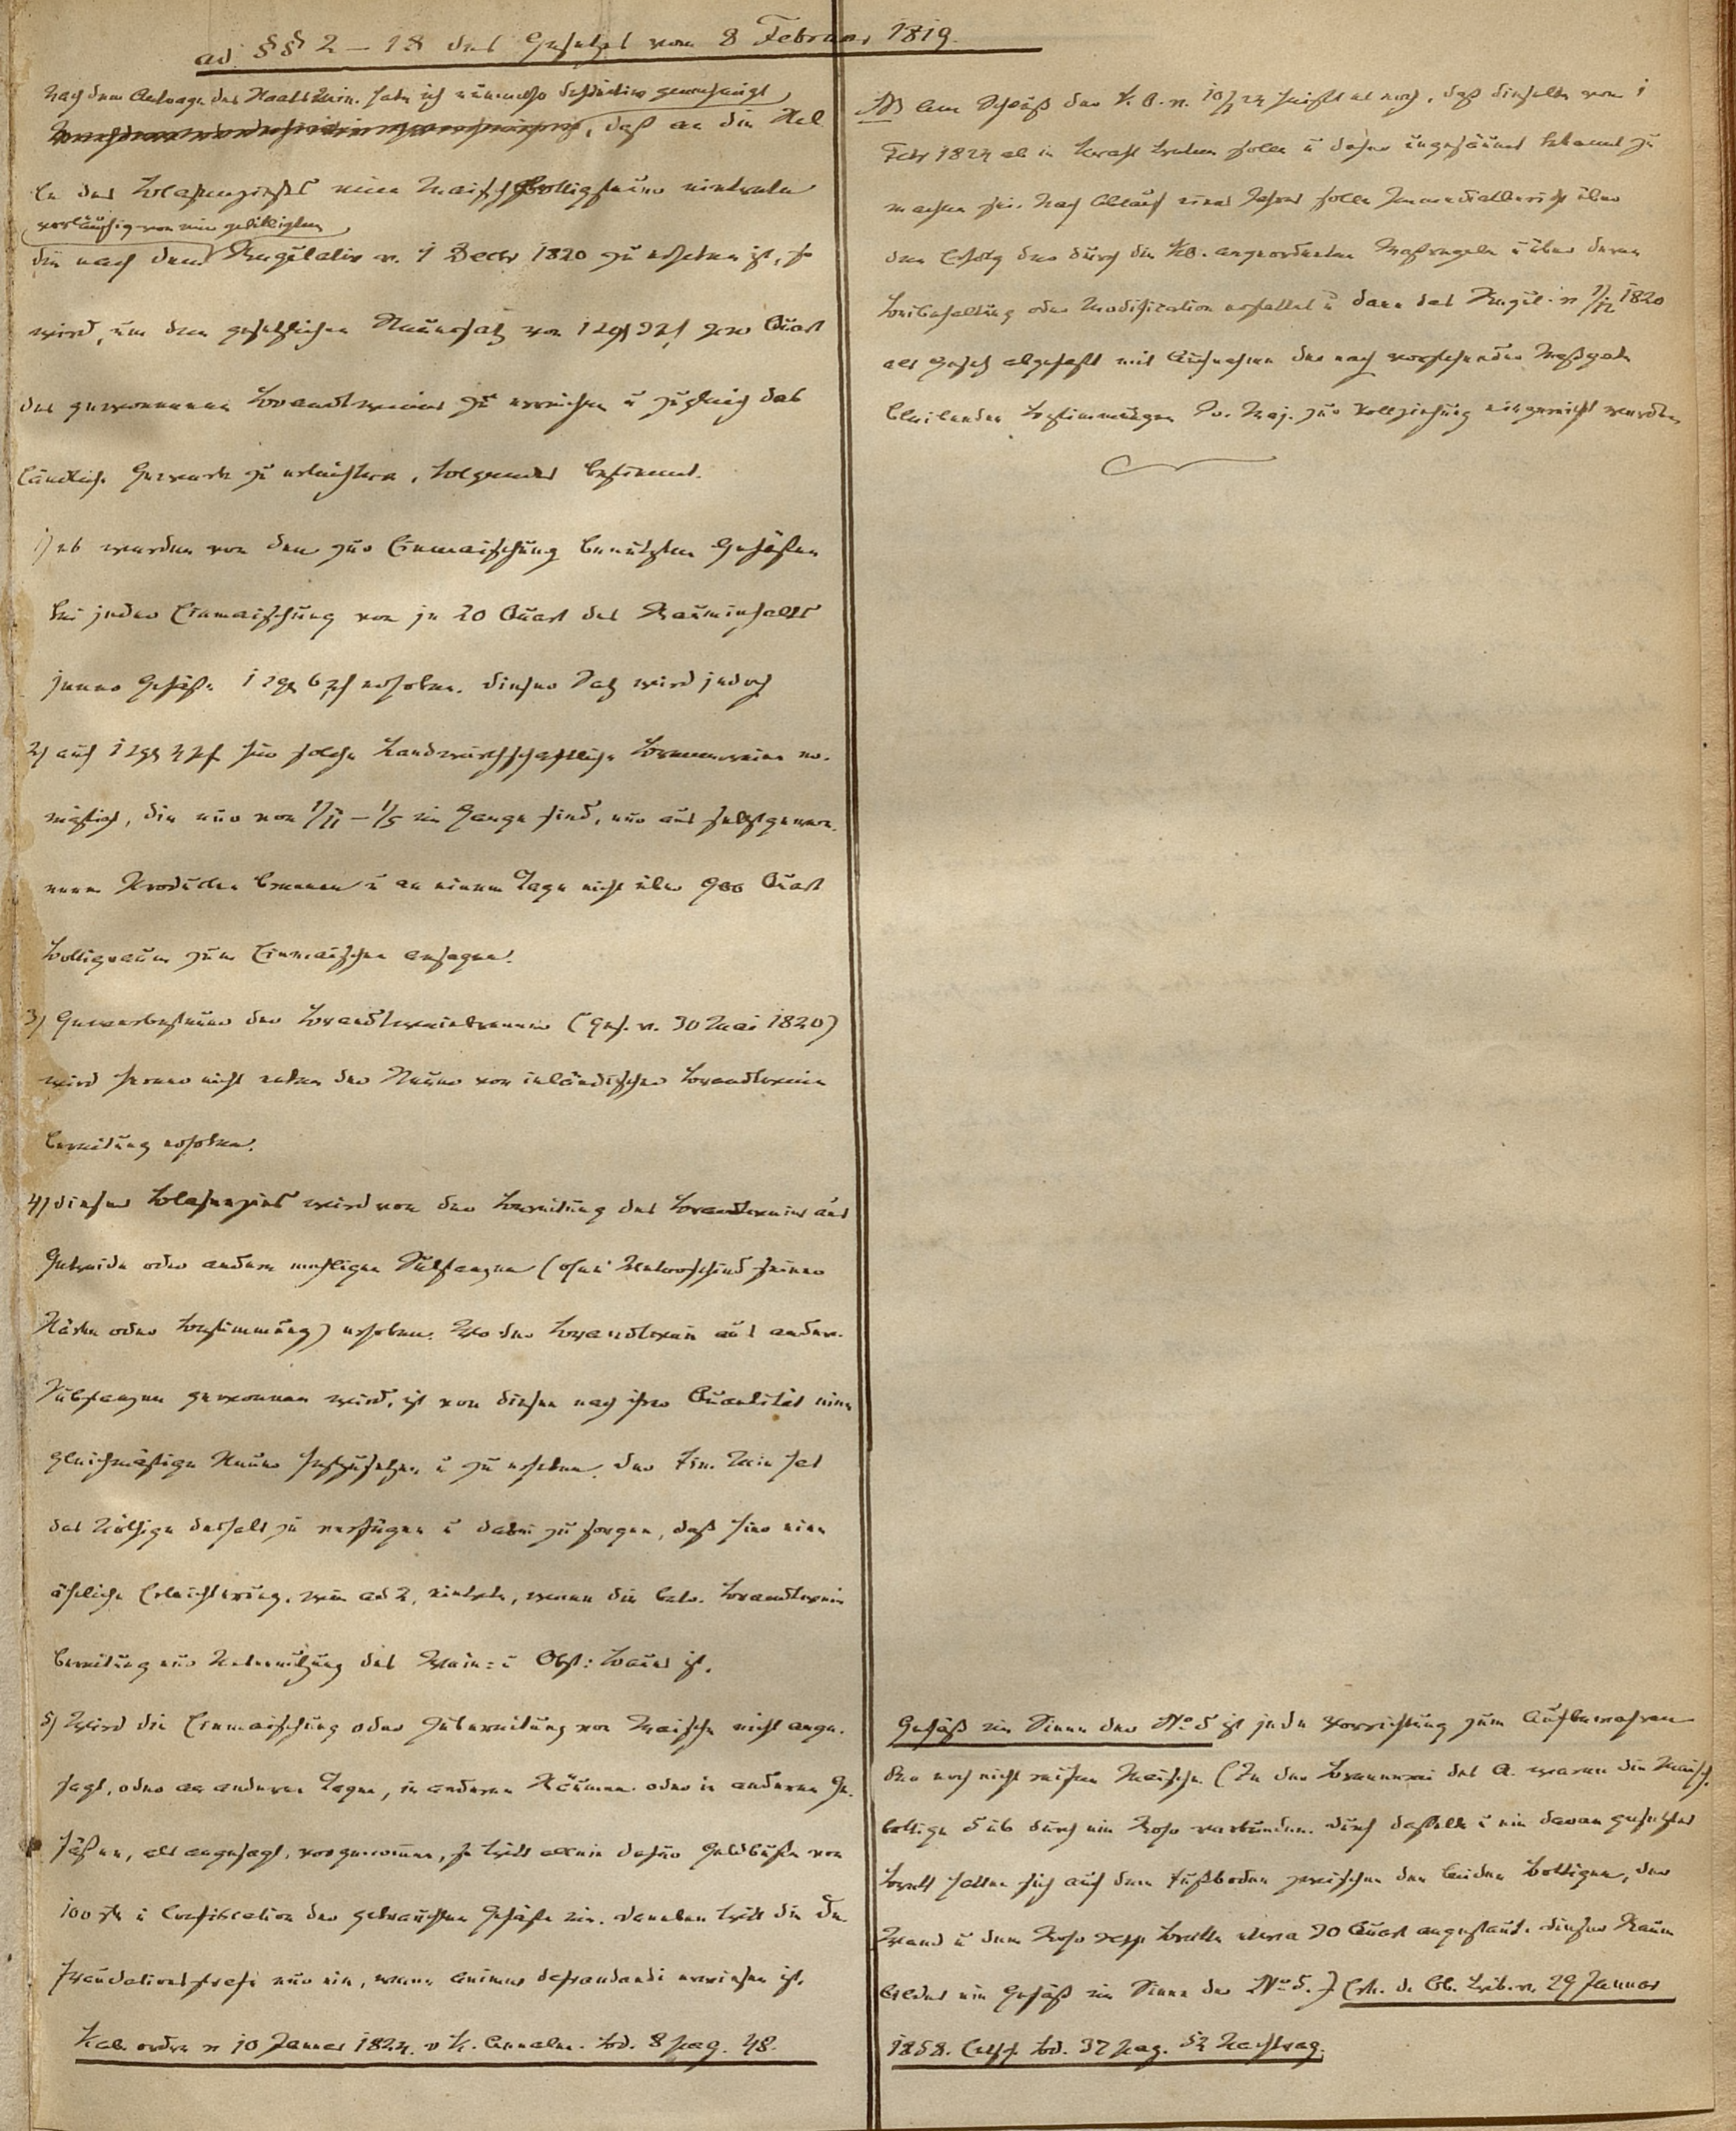 ad §§ 2 – 18 des Gesetzes vom 8 Februar 1819.
Nach dem Antrage des Staats Min. habe ich nunmehr definitiv genehmigt
, daß an die Stel
le des Blasenzinses eine Maischbottigsteuer eintrete
vorläufig von mir gebilligten
die nach dem Regulativ v. 1 Decbr 1820 zu erheben ist, so
wird, um den gesetzlichen Steuersatz von 1 sgr pf pro Quart
des gewonnenen Brandtweins zu erreichen u zugleich das
ländliche Gewerbe zu erleichtern, folgendes bestimmt.
1) es werden von den zur Einmaischung benutzten Gefäßen
bei jeder Einmaischung von je 20 Quart des Rauminhalts
jener Gefäße 1 sgr 6 pf erhoben. dieser Satz wird jedoch
2) auf 1 sgr 4 pf für solche Landwirthschaftliche Brennereien er-
mäßigt, die nur von 1/11 – 1/5 im Gange sind, nur aus selbstgewon-
nenen Producten brennen u an einem Tage nicht über 900 Quart
Bottigraum zum Einmaischen ansagen.
3) Gewerbesteuer der Brandtweinbrenner (Ges. v. 30 Mai 1820)
wird ferner nicht neben der Steuer von inländischer Brandtwein
bereitung erhoben.
4) dieser Blasenzins wird von der Bereitung des Brandtweins aus
Getreide oder andern mehligen Substanzen (ohne Unterschied seiner
Stärke oder Bestimmung) erhoben. Wo der Brandtwein aus andern
Substanzen gewonnen wird, ist von diesen nach ihrer Quantität eine
gleichmäßige Steuer festzusetzen u zu erheben. der Fin. Min hat
das Nöthige deshalb zu verfügen u dabei zu sorgen, daß hier eine
ähnliche Erleichterung, wie ad 2, eintrete, wenn die betr. Brandtwein
bereitung nur Nebennutzung des Wein- u Obst-Baues ist.
5) Wird die Einmaischung oder Zubereitung von Maische nicht ange-
sagt, oder an anderen Tagen, in anderen Räumen oder in anderen Ge-
fäßen, als angesagt, vorgenommen, so tritt allein dafür Geldbuße von
100 rth u Confiscation der gebrauchten Gefäße ein. daneben tritt die De
fraudationsstrafe nur ein, wenn animus defraudandi erwiesen ist.
Kab. ordre v 10 Januar 1824. v K. Annalen. Bd. 8 pag. 48.
NB am Schluß der K. O. v. 10/1 24 heißt es noch, daß dieselbe vom 1
Febr 1824 ab in Kraft treten solle u daher ungesäumt bekannt zu
machen sei. Nach Ablauf eines Jahres solle Immediatbericht über
den Erfolg der durch die KO. angeordneten Maßregeln u über deren
Beibehaltung oder Modification erstattet u dann das Regul. v 1/12 1820
als Gesetz abgefaßt mit Aufnahme der nach vorstehender Maßgabe
bleibenden Bestimmungen Sr. Maj. zur Vollziehung eingereicht werden
Gefäß im Sinne der No 5 ist jede Vorrichtung zum Aufbewahren
der noch nicht reifen Maische. (In der Brennerei des A. waren die Maisch-
bottige 5 u 6 durch ein Rohr verbunden. durch dasselbe u ein daran gesetztes
Brett hatten sich auf dem Fußboden zwischen den beiden Bottigen, der
Wand u dem Rohr resp Brette etwa 30 Quart angestaut. dieser Raum
bildet ein Gefäß im Sinne der No 5.) Erk. d. Ob. Trib. v. 29 Januar
1858. Entsch. Bd. 37 pag. 52 Nachtrag.